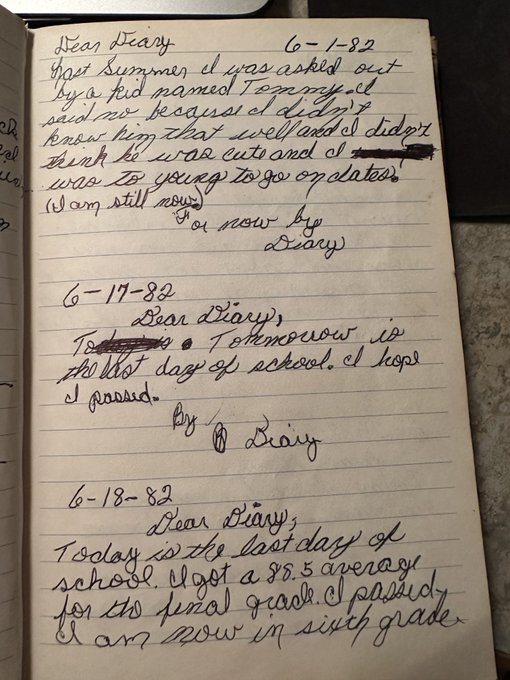 Dear Diary 6-1-82
Last Summer I was asked out
by a kid named Tommy. I
said no because I didn't
know him that well and I didn't
think he was cute and I
was to young to go on dates.
(I am still now.)
For now by
Diary
6-17-82
Dear Diary,
Tommorrow is
the last day of school. I hope
I passed.
By
Diary
6-18-82
Dear Diary,
Today is the last day of
school. I got a 88.5 average
for the final grade. I passed,
I am now in sixth grade.